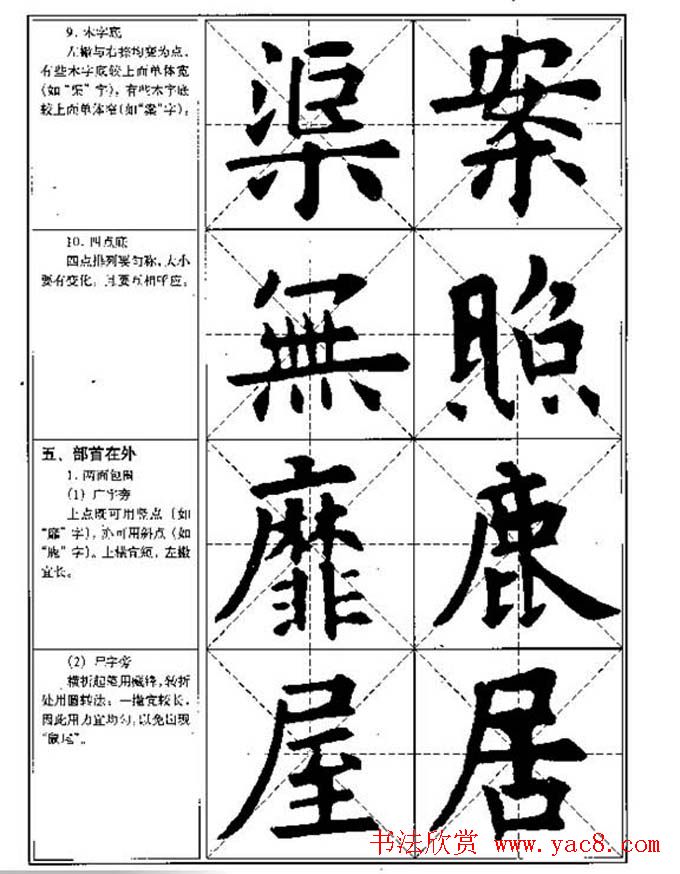 9. 木字底
左撇与右捺均变为点，
有些木字底较上面单体宽
(如“渠”字)，有些木字底
较上面单体窄(如“案”字)。
渠 案
10. 四点底
四点排列要匀称，大小
要有变化，且要互相呼应。
無 照
五、部首在外
1. 两面包围
(1) 广字旁
上点既可用竖点（如
“靡”字），亦可用斜点（如
“鹿”字）。上横宜短，左撇
宜长。
靡 鹿
(2) 尸字旁
横折起笔用藏锋，转折
处用圆转法；一撇宜较长，
因此用力宜均匀，以免出现
“鼠尾”。
屋 居
书法欣赏 www.yac8.com